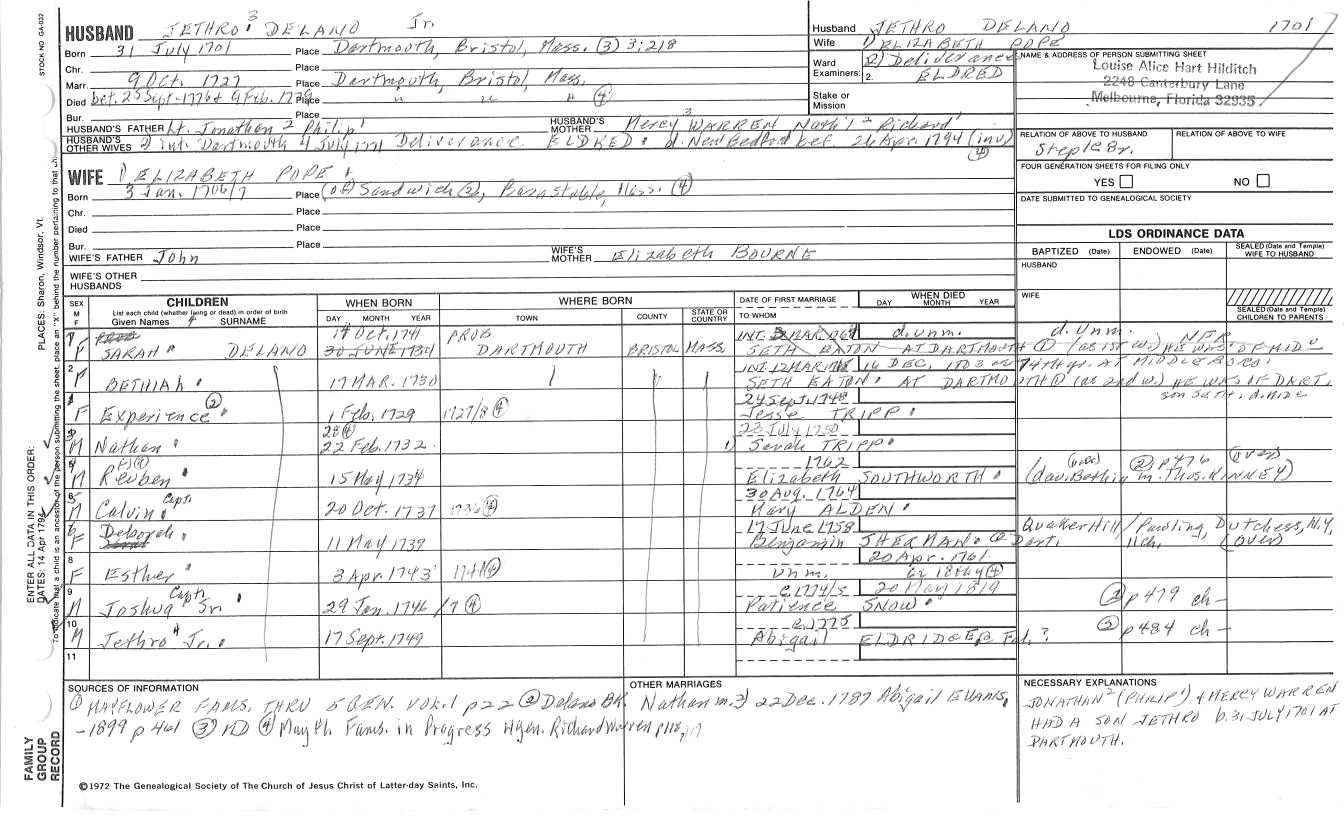 STOCK NO. GA-032
HUSBAND JETHRO 3 DELANO Jr.
Born 31 July 1701 Place Dartmouth, Bristol, Mass. (3) 3:218
Chr. Place
Marr. 9 Oct. 1727 Place Dartmouth, Bristol, Mass.
Died bet. 25 Sept. 1776 & 9 Feb. 1779 Place " " " (4)
Bur.
HUSBAND'S FATHER Lt. Jonathan 2 Philip 1 HUSBAND'S MOTHER Mercy 3 WARREN Nath'l 2 Richard 1
HUSBAND'S OTHER WIVES 2) int. Dartmouth 4 July 1771 Deliverance ELDRED d. New Bedford bef 26 Apr. 1794 (inv) (4)
WIFE 1) ELIZABETH POPE
Born 3 Jan. 1706/7 Place (of) Sandwich (2), Barnstable, Mass. (4)
Chr. Place
Died Place
Bur. Place
WIFE'S FATHER John WIFE'S MOTHER Elizabeth BOURNE
WIFE'S OTHER HUSBANDS
Husband JETHRO DELANO 1701
Wife 1) ELIZABETH POPE
2) Deliverance
ELDRED
Ward
Examiners: 2.
Stake or
Mission
NAME & ADDRESS OF PERSON SUBMITTING SHEET
Louise Alice Hart Hilditch
2248 Canterbury Lane
Melbourne, Florida 32935
RELATION OF ABOVE TO HUSBAND RELATION OF ABOVE TO WIFE
FOUR GENERATION SHEETS FOR FILING ONLY
YES NO
DATE SUBMITTED TO GENEALOGICAL SOCIETY
LDS ORDINANCE DATA
BAPTIZED (Date) ENDOWED (Date) SEALED (Date and Temple) WIFE TO HUSBAND
HUSBAND
WIFE
SEALED (Date and Temple) CHILDREN TO PARENTS
SEX M F CHILDREN WHEN BORN WHERE BORN DATE OF FIRST MARRIAGE WHEN DIED
List each child (whether living or dead) in order of birth
Given Names SURNAME DAY MONTH YEAR TOWN COUNTY STATE OR COUNTRY TO WHOM DAY MONTH YEAR
F SARAH DELANO 14 Oct. 1741 30 JUNE 1734 PROB. DARTMOUTH BRISTOL MASS. d. unm. d. unm. NFR
SETH EATON AT DARTMOUTH (1) (as 1st w.) HE WAS OF MID
2 F BETHIAH 17 MAR. 1730 INT. 12 MAR. 16 DEC. 74th yr. AT MIDDLEBORO.
SETH EATON AT DARTMOUTH (1) (as 2nd w.) HE WAS OF DART.
F Experience (2) 1 Feb. 1729 1727/8 (4) 24 Sept. 1748 Jesse TRIPP
M Nathan 28 (4) 22 Feb. 1732 23 July 1750 1) Sarah TRIPP
M Reuben 15 May 1734 1762 Elizabeth SOUTHWORTH (2) p476 (over)
(dau. Bethia m. Thos. KINNEY)
M Calvin Capt. 20 Oct. 1737 1736 (4) 30 Aug. 1764 Mary ALDEN
F Deborah 11 May 1739 17 June 1758 Benjamin SHERMAN @ Dart. Quaker Hill/Pawling, Dutchess, N.Y. 11 ch. (over)
8 F Esther 3 Apr. 1743 1744 (4) unm. 20 Apr. 1761 in 18th y (4)
9 M Joshua Capt. Sr. 29 Jan. 1746/7 (4) c. 1774/5 Patience SNOW 20 May 1819 (2) p479 ch –
10 M Jethro 4 Jr. 17 Sept. 1749 c. 1775 Abigail ELDRIDGE (2) p484 ch –
11
SOURCES OF INFORMATION
(1) MAYFLOWER FAMS. THRU 5 GEN. VOL. 1 p22 (2) Delano BK.
–1899 p 461 (3) ND (4) Mayfl. Fams. in Progress 4 gen. Richard Warren p116, 17
OTHER MARRIAGES
Nathan m. 2) 22 Dec. 1787 Abigail EVANS
NECESSARY EXPLANATIONS
JONATHAN 2 (PHILIP 1) & MERCY WARREN
HAD A SON JETHRO b. 31 JULY 1701 AT
DARTMOUTH.
©1972 The Genealogical Society of The Church of Jesus Christ of Latter-day Saints, Inc.
FAMILY GROUP RECORD
ENTER ALL DATA IN THIS ORDER:
DATES: 14 Apr 1794
PLACES: Sharon, Windsor, Vt.